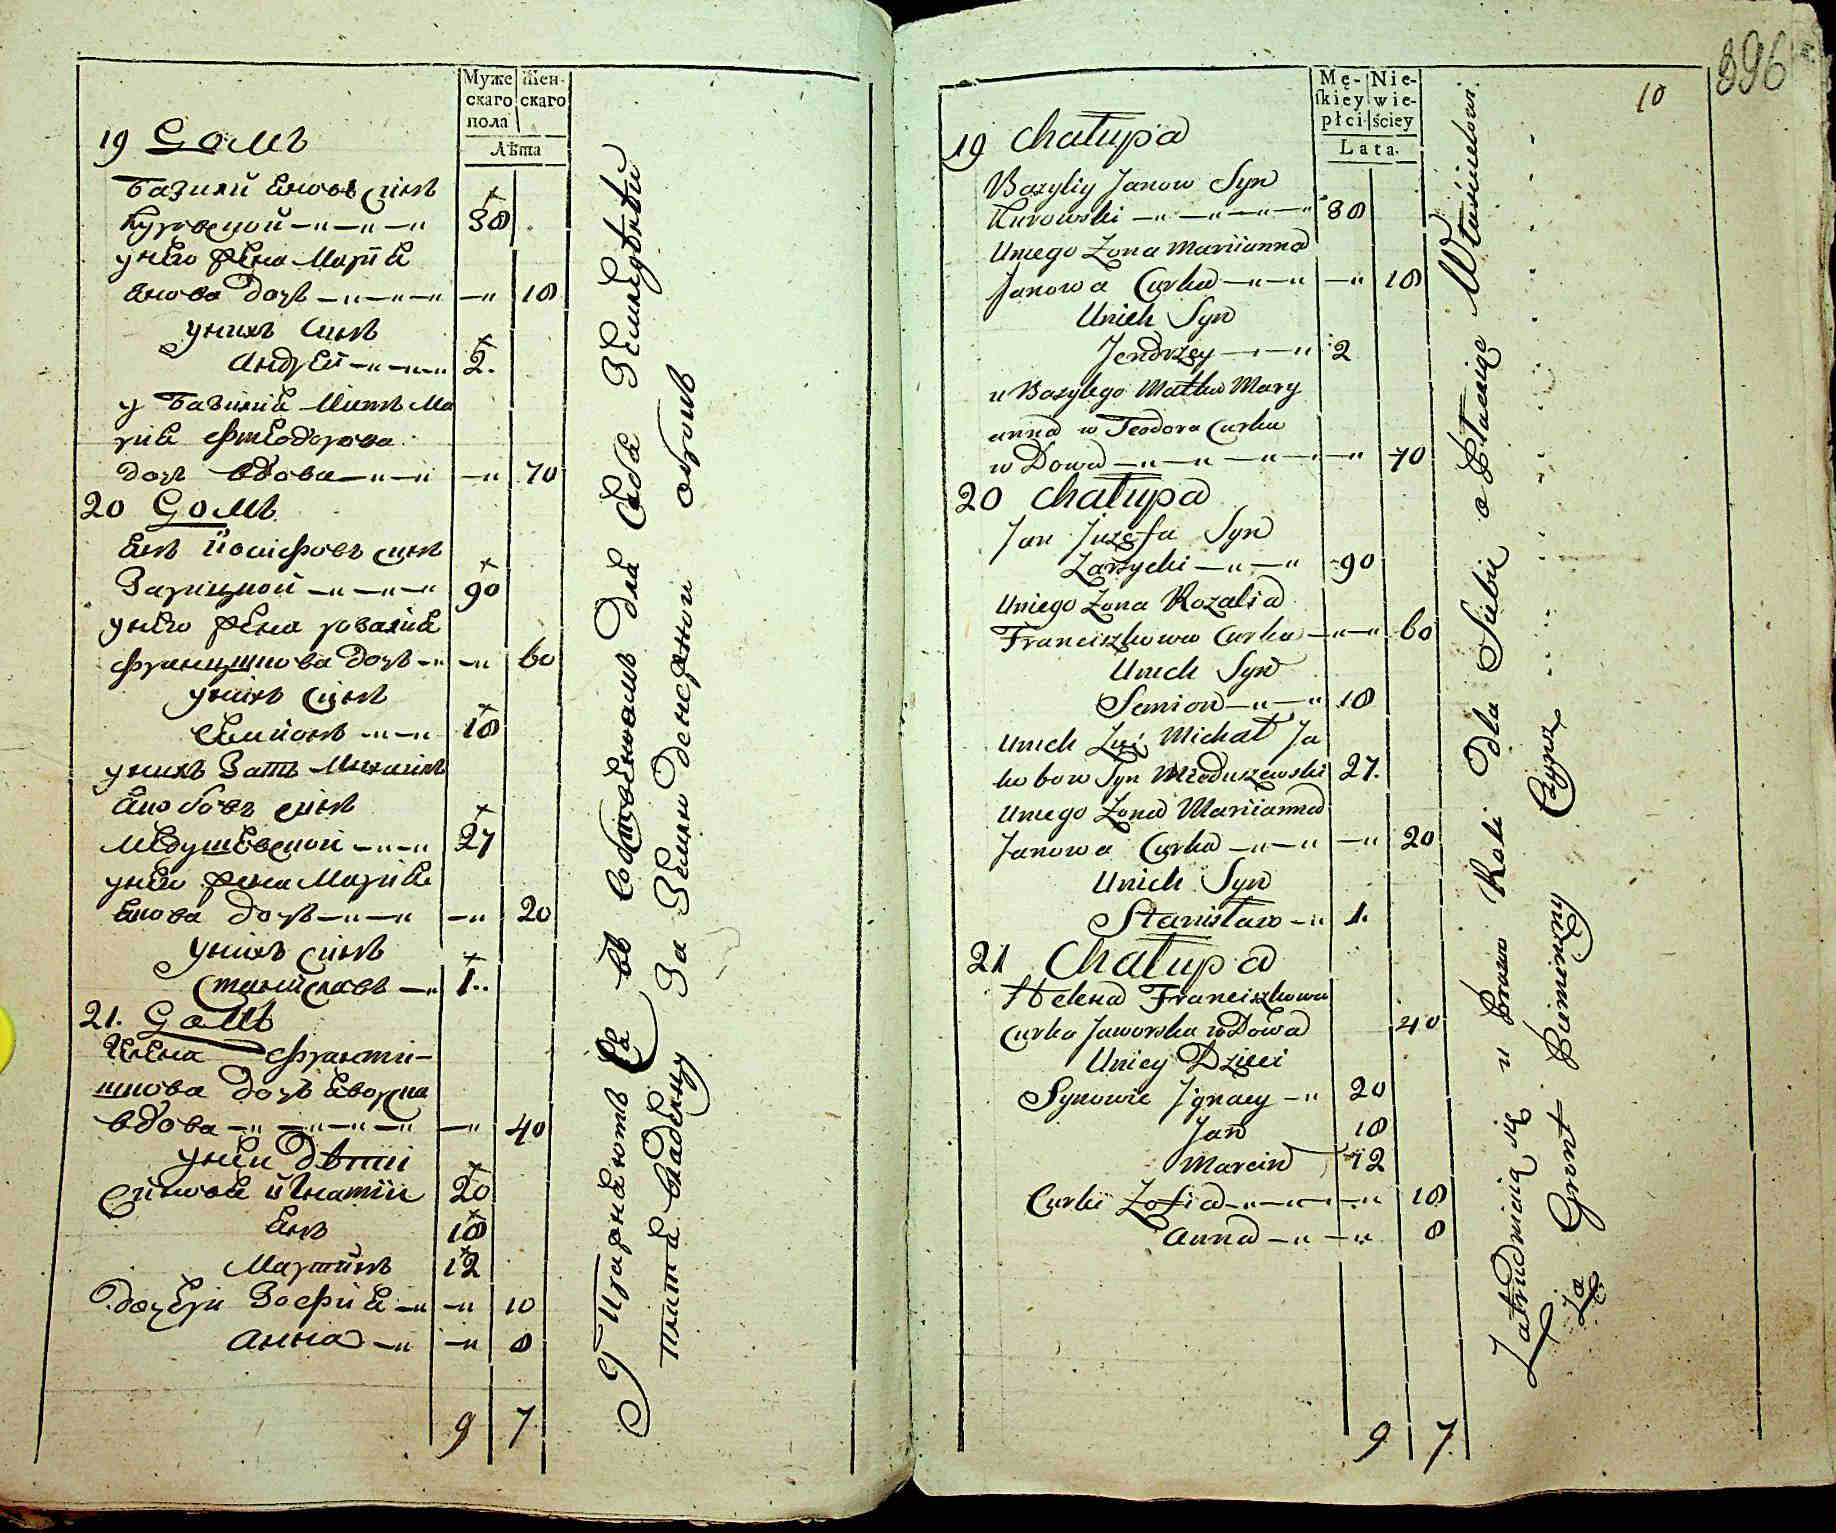 Муже Жен-
скаго скаго
пола
Лѣта
19 Домъ
Базили Яновъ синъ
Куровской 38
унего жена Мария
Янова дочь 18
унихъ синъ
Андрей 2.
у Базилия Мать Ма
рия Фтеодорова
дочь вдова 70
20 Домъ
Янъ Йосифовъ синъ
Зарицкой 90
унего жена розалия
Францишкова дочь 60
унихъ синъ
Семионъ 18
унихъ Зать Михаилъ
Якобовъ синъ
Медушевской 27
унего жена Мария
Янова дочь 20
унихъ синъ
Станиславъ 1..
21. Домъ
Илена Франти-
шкова дочь Яворска
вдова 40
уней дѣти
Синовя Игнатии 20
Янъ 18
Мартинъ 12
дочери Зофия 10
Анна 8
9 7
Упражняютъ ся въ собственномъ для Себя Земледѣлии
платя владелцу За Землю денежной оброкъ
896
10
Mę- Nie-
skiey wie-
płci ściey
Lata
19 Chałupa
Bazyliy Janow Syn
Kurowski 38
Uniego Zona Mariianna
Janowa Curka 18
Unich Syn
Jendrzey 2
u Bazylego Matka Mary
anna w Teodora Curka
w Dowa 70
20 Chałupa
Jan Juzefa Syn
Zarzycki 90
Uniego Zona Rozalia
Franciszkowa Curka 60
Unich Syn
Semion 18
Unich Zięć Michał Ja
kobow Syn Mieduszewski 27.
Uniego Zona Mariianna
Janowa Curka 20
Unich Syn
Stanisław 1.
21 Chałupa
Helena Franciszkowa
Curka Jaworska wDowa 40
Uniey Dzieci
Synowie Jgnacy 20
Jan 18
Marcin 12
Curki Zofia 18
Anna 8
9 7
Zatrudniaią się u Prawo Roli dla Siebie a Płacąię Właścicielowi
Za Gront Pieniężny Czynsz